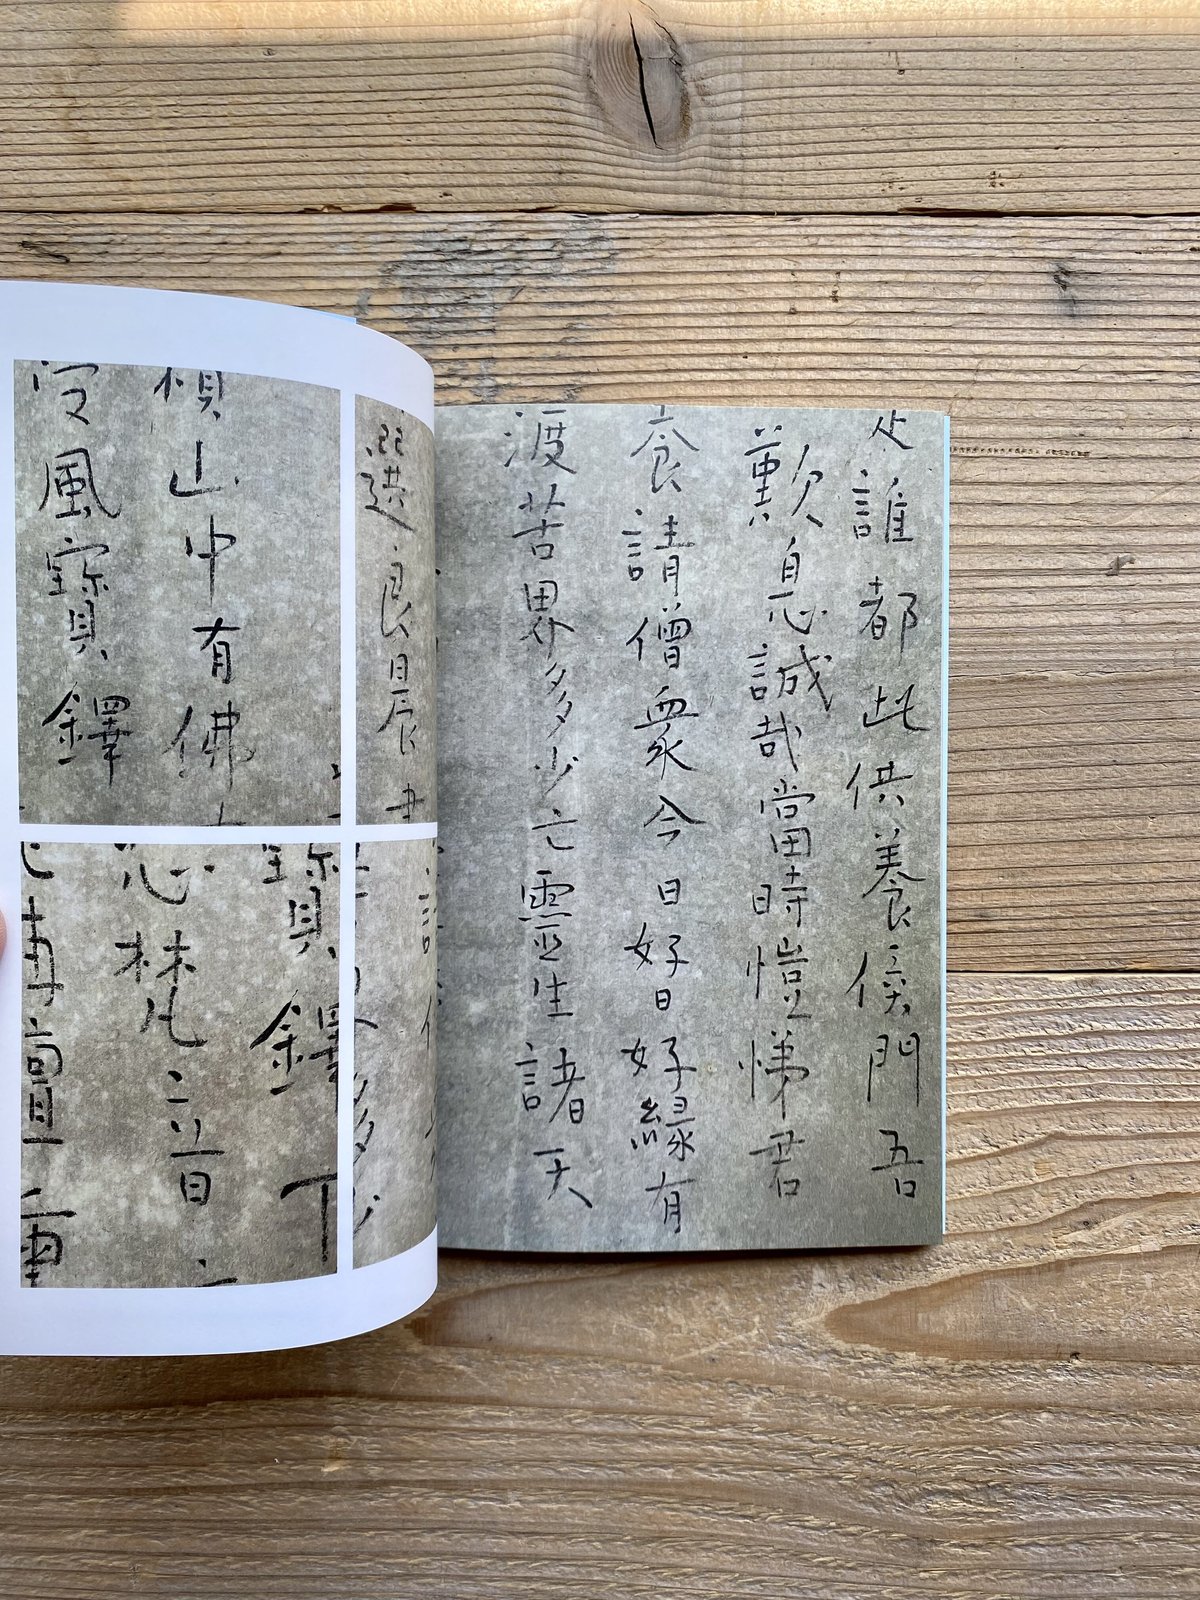 誰都此供養侯門吾
歎息誠哉當時愷悌君
食請僧衆今日好日好緣有
渡苦界多少亡靈生諸天
選良晨
山中有佛
風寶鐸
寶鐸下
梵音